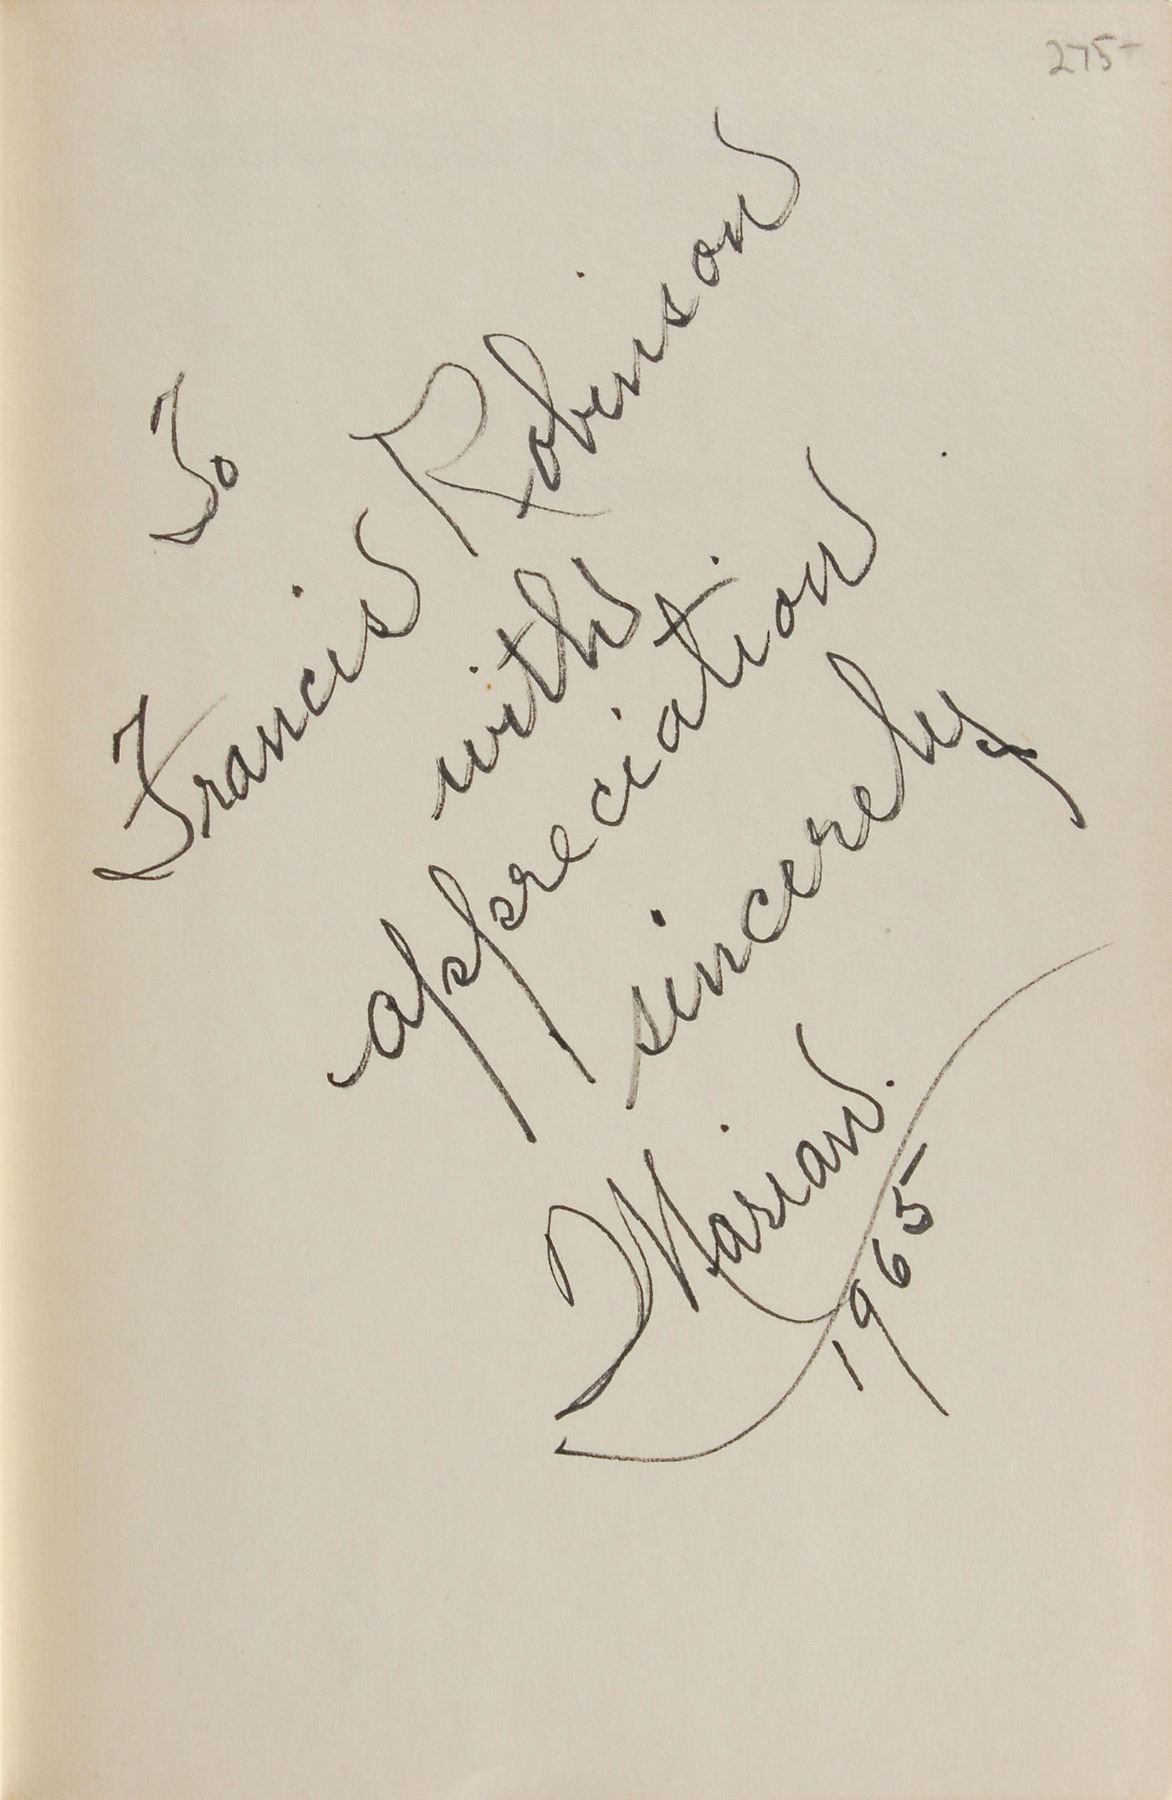 275-
To
Francis Robinson
with
appreciation
sincerely
Marian.
1965